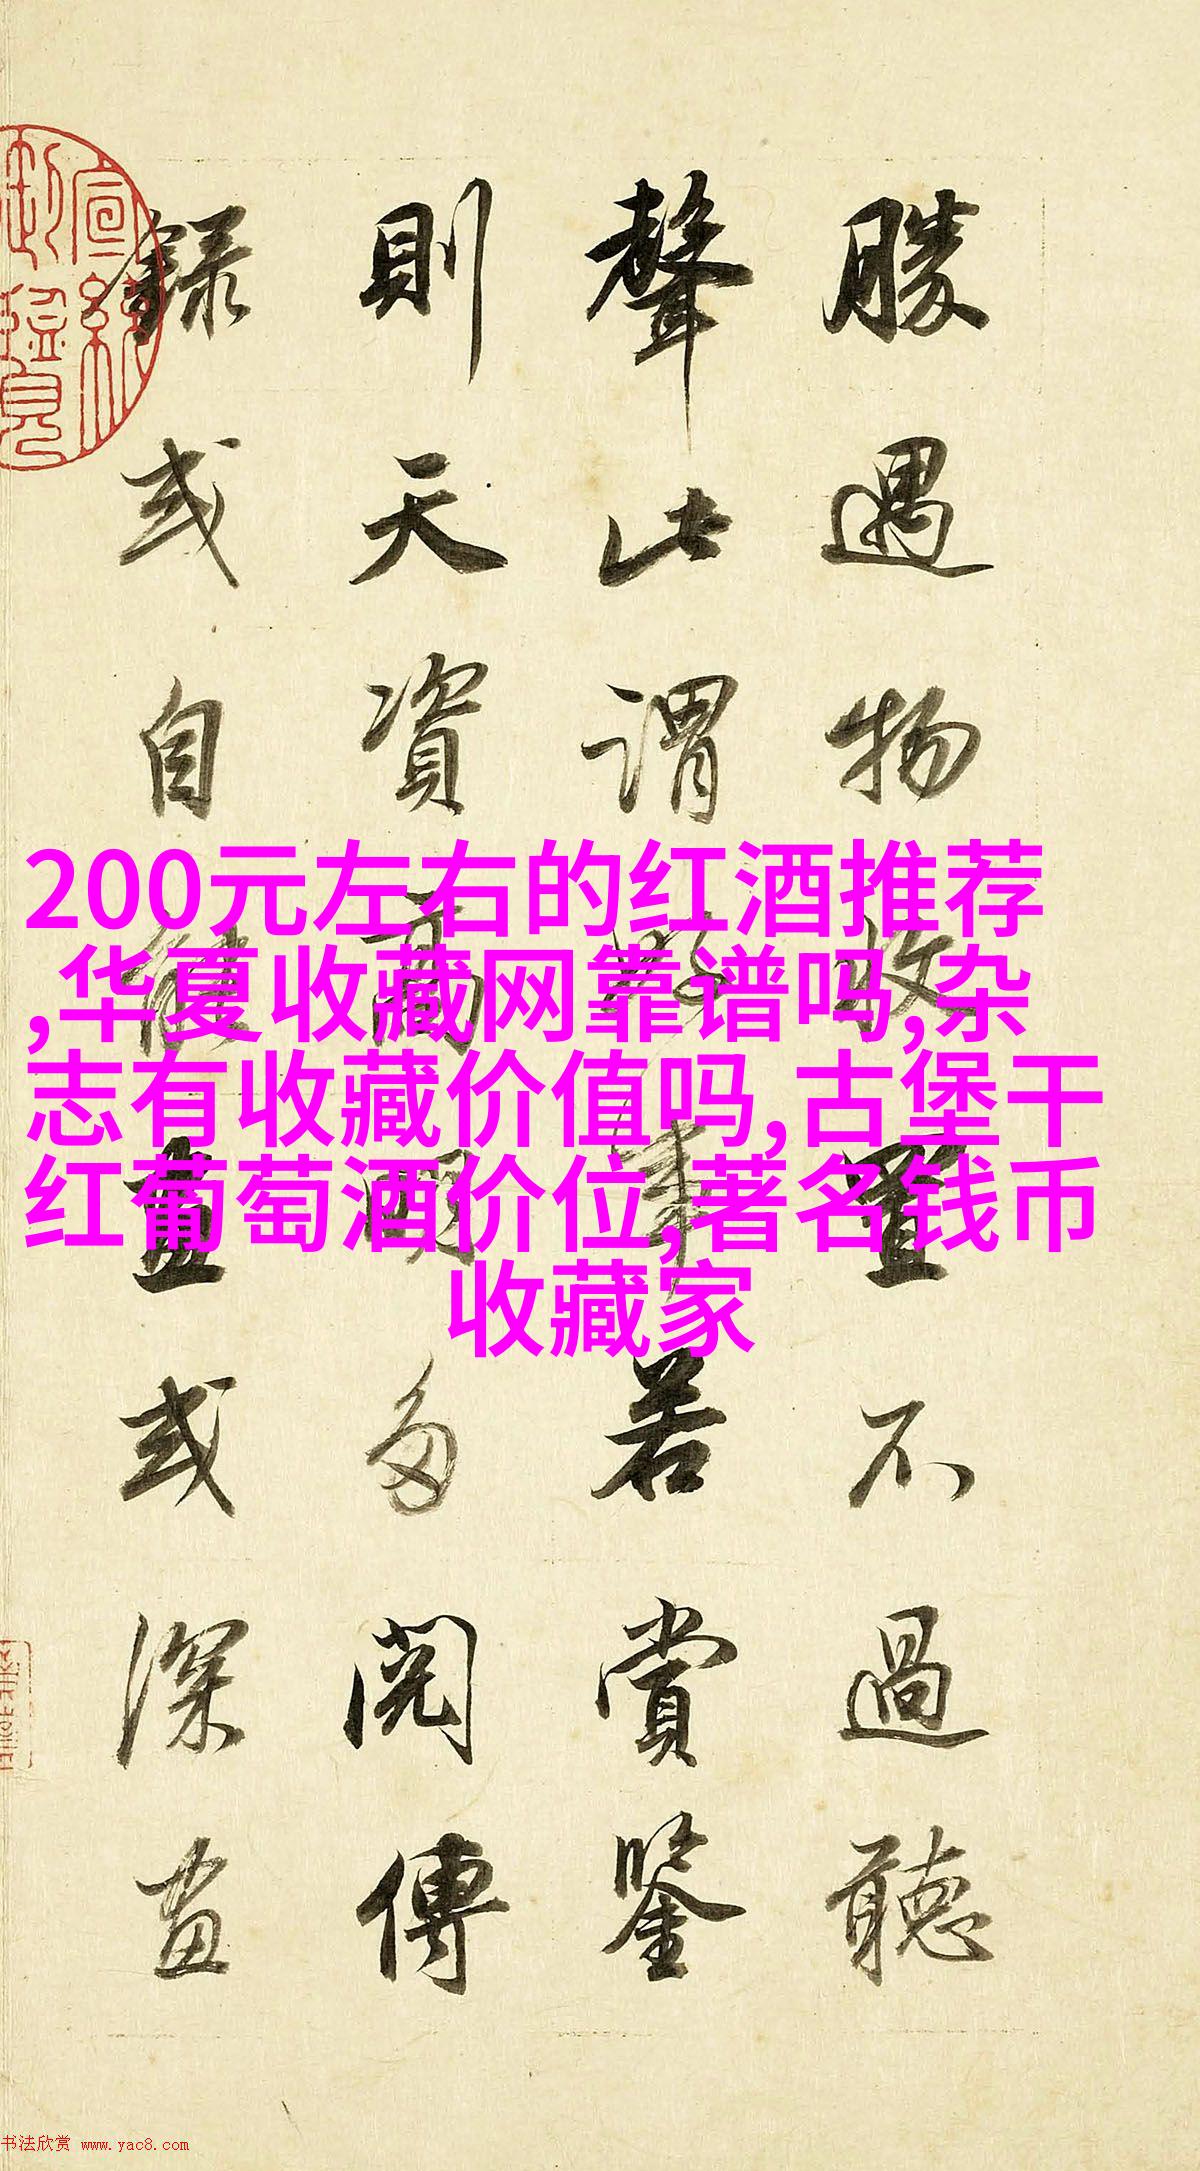 勝遇物收置不過聽
聲此謂好事若賞鑒
則天資高明多閱傳
錄或自能畫或深畫
宣統御覽
200元左右的红酒推荐
,华夏收藏网靠谱吗,杂
志有收藏价值吗,古堡干
红葡萄酒价位,著名钱币
收藏家
书法欣赏 www.yac8.com